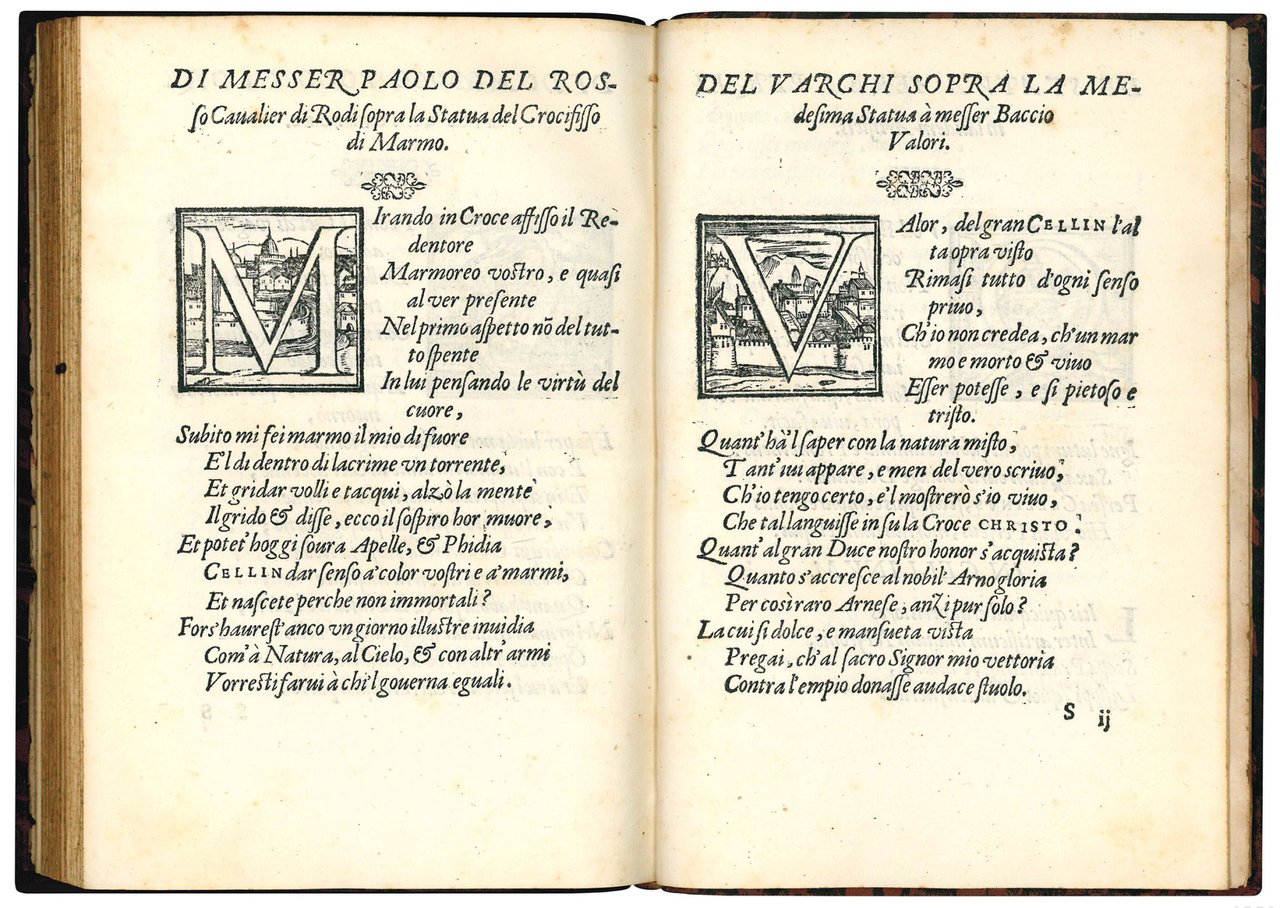 DI MESSER PAOLO DEL ROS-
so Caualier di Rodi sopra la Statua del Crocifisso
di Marmo.
MIrando in Croce affisso il Re-
dentore
Marmoreo vostro, e quasi
al ver presente
Nel primo aspetto nō del tut-
to spente
In lui pensando le virtù del
cuore,
Subito mi fei marmo il mio di fuore
E'l di dentro di lacrime vn torrente,
Et gridar volli e tacqui, alzò la mente
Il grido & disse, ecco il sospiro hor, muore,
Et potet' hoggi soura Apelle, & Phidia
CELLIN dar senso a' color vostri e a' marmi,
Et nascete perche non immortali?
Fors' haurest' anco vn giorno illustre inuidia
Com' à Natura, al Cielo, & con altr' armi
Vorresti farui à chi'l gouerna eguali.
DEL VARCHI SOPRA LA ME-
desima Statua à messer Baccio
Valori.
VAlor, del gran CELLIN l'al
ta opra visto
Rimasi tutto d'ogni senso
priuo,
Ch'io non credea, ch'un mar
mo e morto & viuo
Esser potesse, e si pietoso e
tristo.
Quant' hà'l saper con la natura misto,
Tant' iui appare, e men del vero scriuo,
Ch'io tengo certo, e'l mostrerò s'io viuo,
Che tal languisse in su la Croce CHRISTO.
Quant' al gran Duce nostro honor s'acquista?
Quanto s'accresce al nobil' Arno gloria
Per così raro Arnese, anzi pur solo?
La cui si dolce, e mansueta vista
Pregai, ch'al sacro Signor mio vettoria
Contra l'empio donasse audace stuolo.
S ij